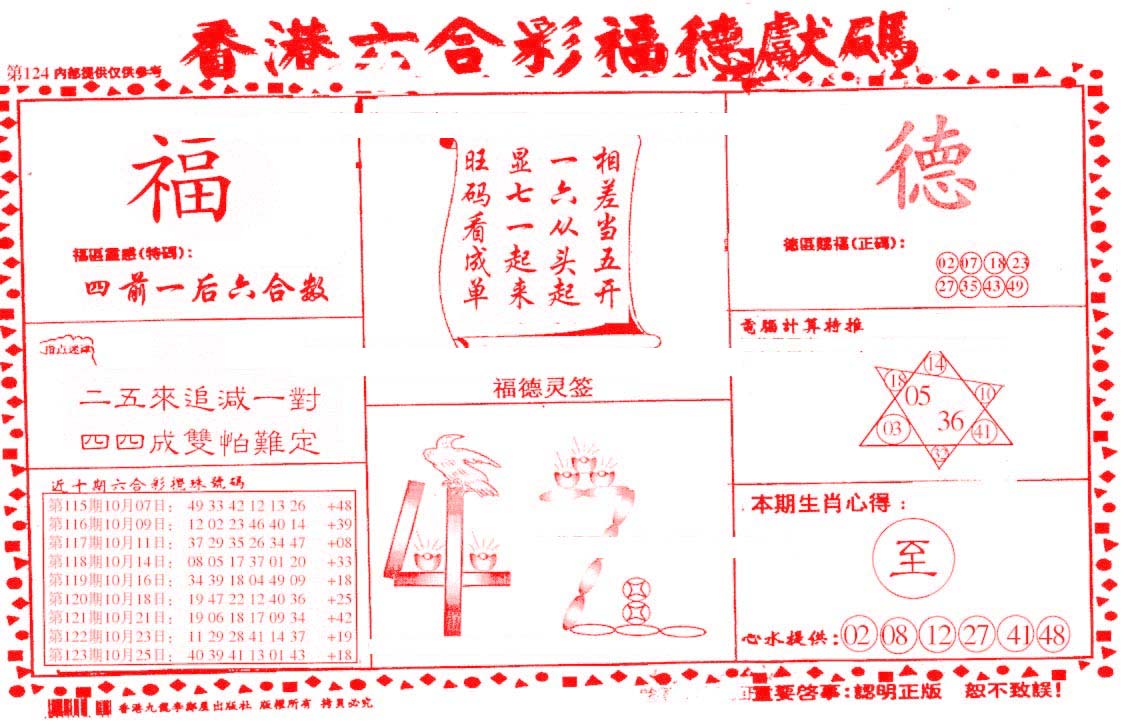 香港六合彩福德獻碼
第124 内部提供仅供參考
福
福區靈感(特碼)：
四前一后六合数
指点迷津
二五來追減一對
四四成雙怕難定
近十期六合彩攪珠號碼
第115期10月07日： 49 33 42 12 13 26 +48
第116期10月09日： 12 02 23 46 40 14 +39
第117期10月11日： 37 29 35 26 34 47 +08
第118期10月14日： 08 05 17 37 01 20 +33
第119期10月16日： 34 39 18 04 49 09 +18
第120期10月18日： 19 47 22 12 40 36 +25
第121期10月21日： 19 06 18 17 09 34 +42
第122期10月23日： 11 29 28 41 14 37 +19
第123期10月25日： 40 39 41 13 01 43 +18
相差当五开
一六从头起
显七一起来
旺码看成单
福德灵签
德
德區賜福(正碼)：
02 07 18 23
27 35 43 49
電腦計算特推
14
18 10
05
36
03 41
32
本期生肖心得：
至
心水提供：02 08 12 27 41 48
重要啓事：認明正版 恕不致誤！
香港九龍李鄭屋出版社 版權所有 拷貝必究